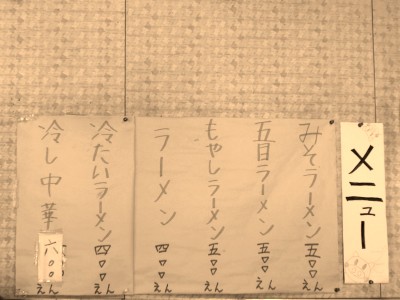 メニュー
みそラーメン五〇〇えん
五目ラーメン五〇〇えん
もやしラーメン五〇〇えん
ラーメン四〇〇えん
冷たいラーメン四〇〇えん
冷し中華六〇〇えん